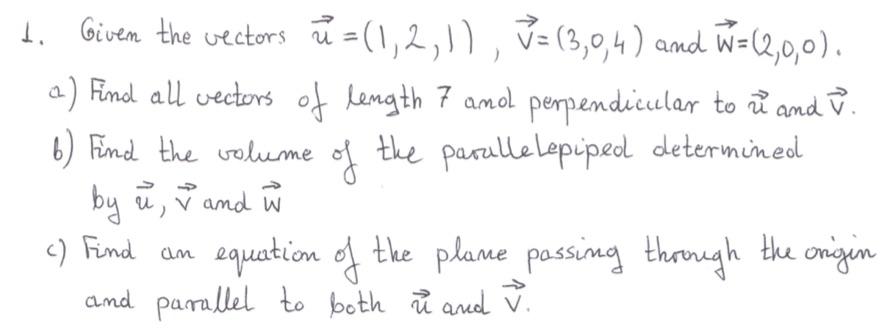 1. Given the vectors u⃗ = (1, 2, 1), v⃗ = (3, 0, 4) and w⃗ = (2, 0, 0).
a) Find all vectors of length 7 and perpendicular to u⃗ and v⃗.
b) Find the volume of the parallelepiped determined
by u⃗, v⃗ and w⃗
c) Find an equation of the plane passing through the origin
and parallel to both u⃗ and v⃗.